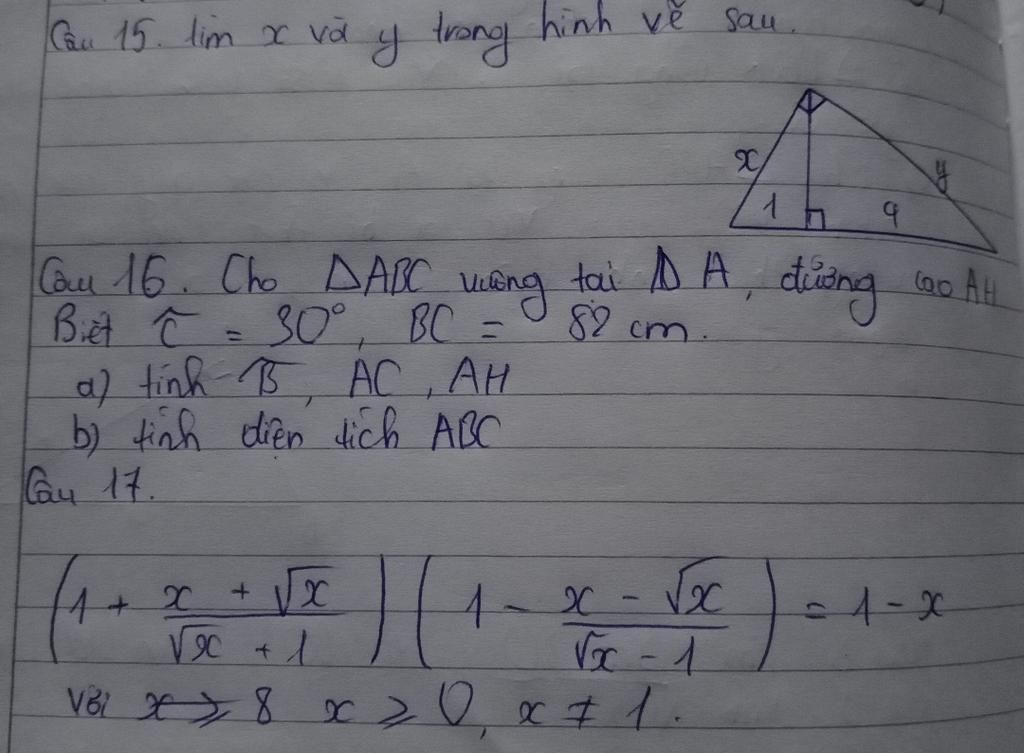 Câu 15. tìm x và y trong hình vẽ sau.
x
y
1
9
Câu 16. Cho ΔABC vuông tại Δ A, đường cao AH
Biết Ĉ = 30°, BC = 82 cm.
a) tính B̂, AC, AH
b) tính diện tích ABC
Câu 17.
(1 + (x + √x)/(√x + 1)) (1 - (x - √x)/(√x - 1)) = 1 - x
với x ≥ 8 x ≥ 0, x ≠ 1.